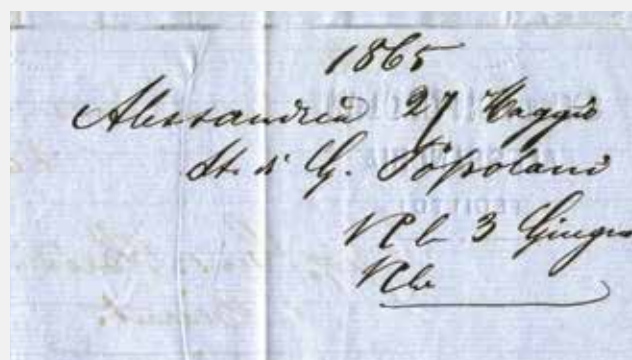 1865
Alessandria 27 Maggio
St. di G. Popolani
3 Giugno